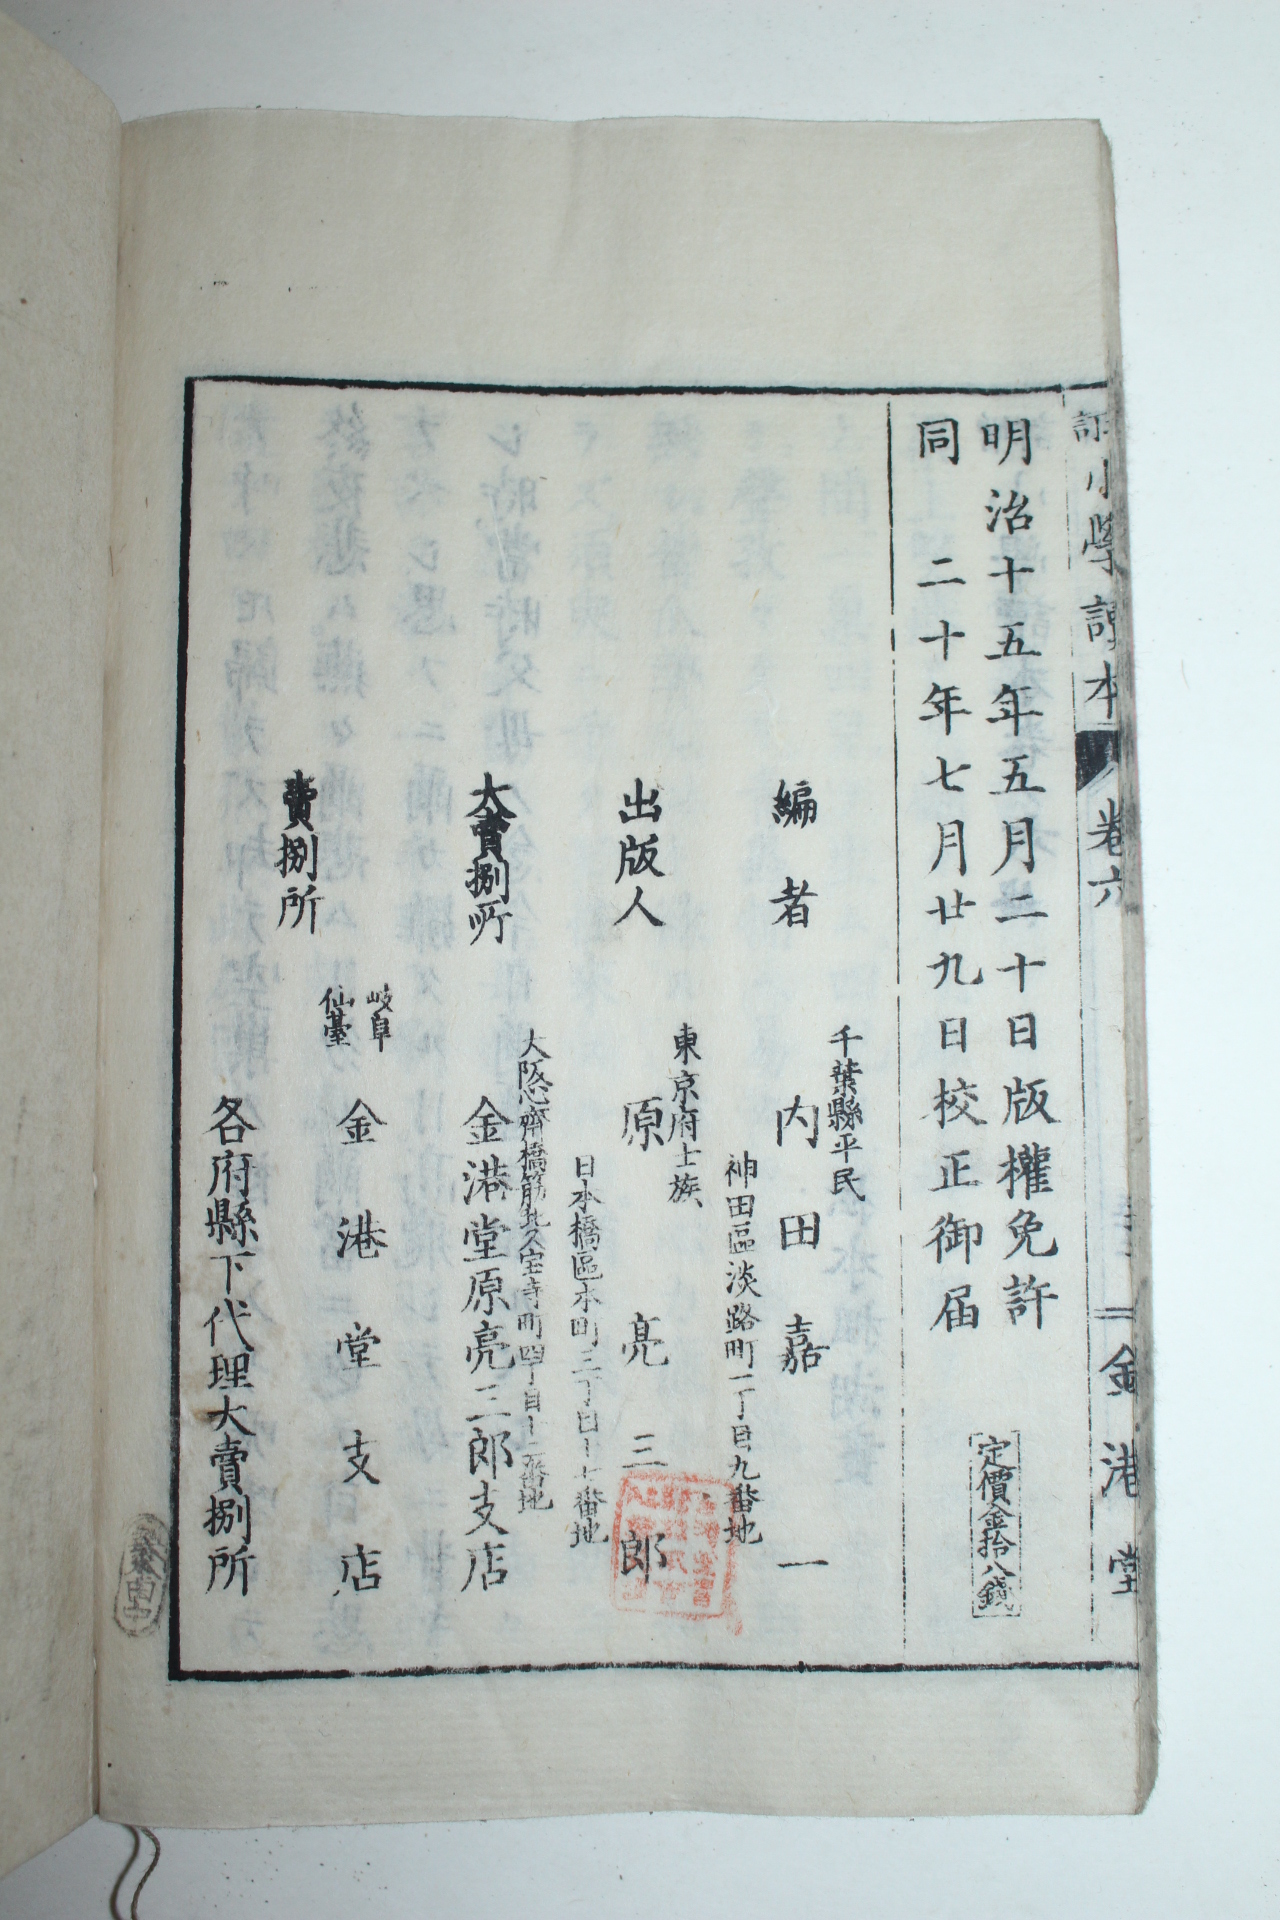 小學讀本
卷六
金港堂
明治十五年五月二十日版權免許
同二十年七月廿九日校正御届
定價金拾八錢
千葉縣平民
編者 内田嘉一
神田區淡路町一丁目九番地
東京府士族
出版人 原亮三郎
日本橋區本町三丁目十七番地
大阪心齋橋筋北久宝寺町四丁目十二番地
大賣捌所 金港堂原亮三郎支店
岐阜
仙臺
金港堂支店
賣捌所
各府縣下代理大賣捌所